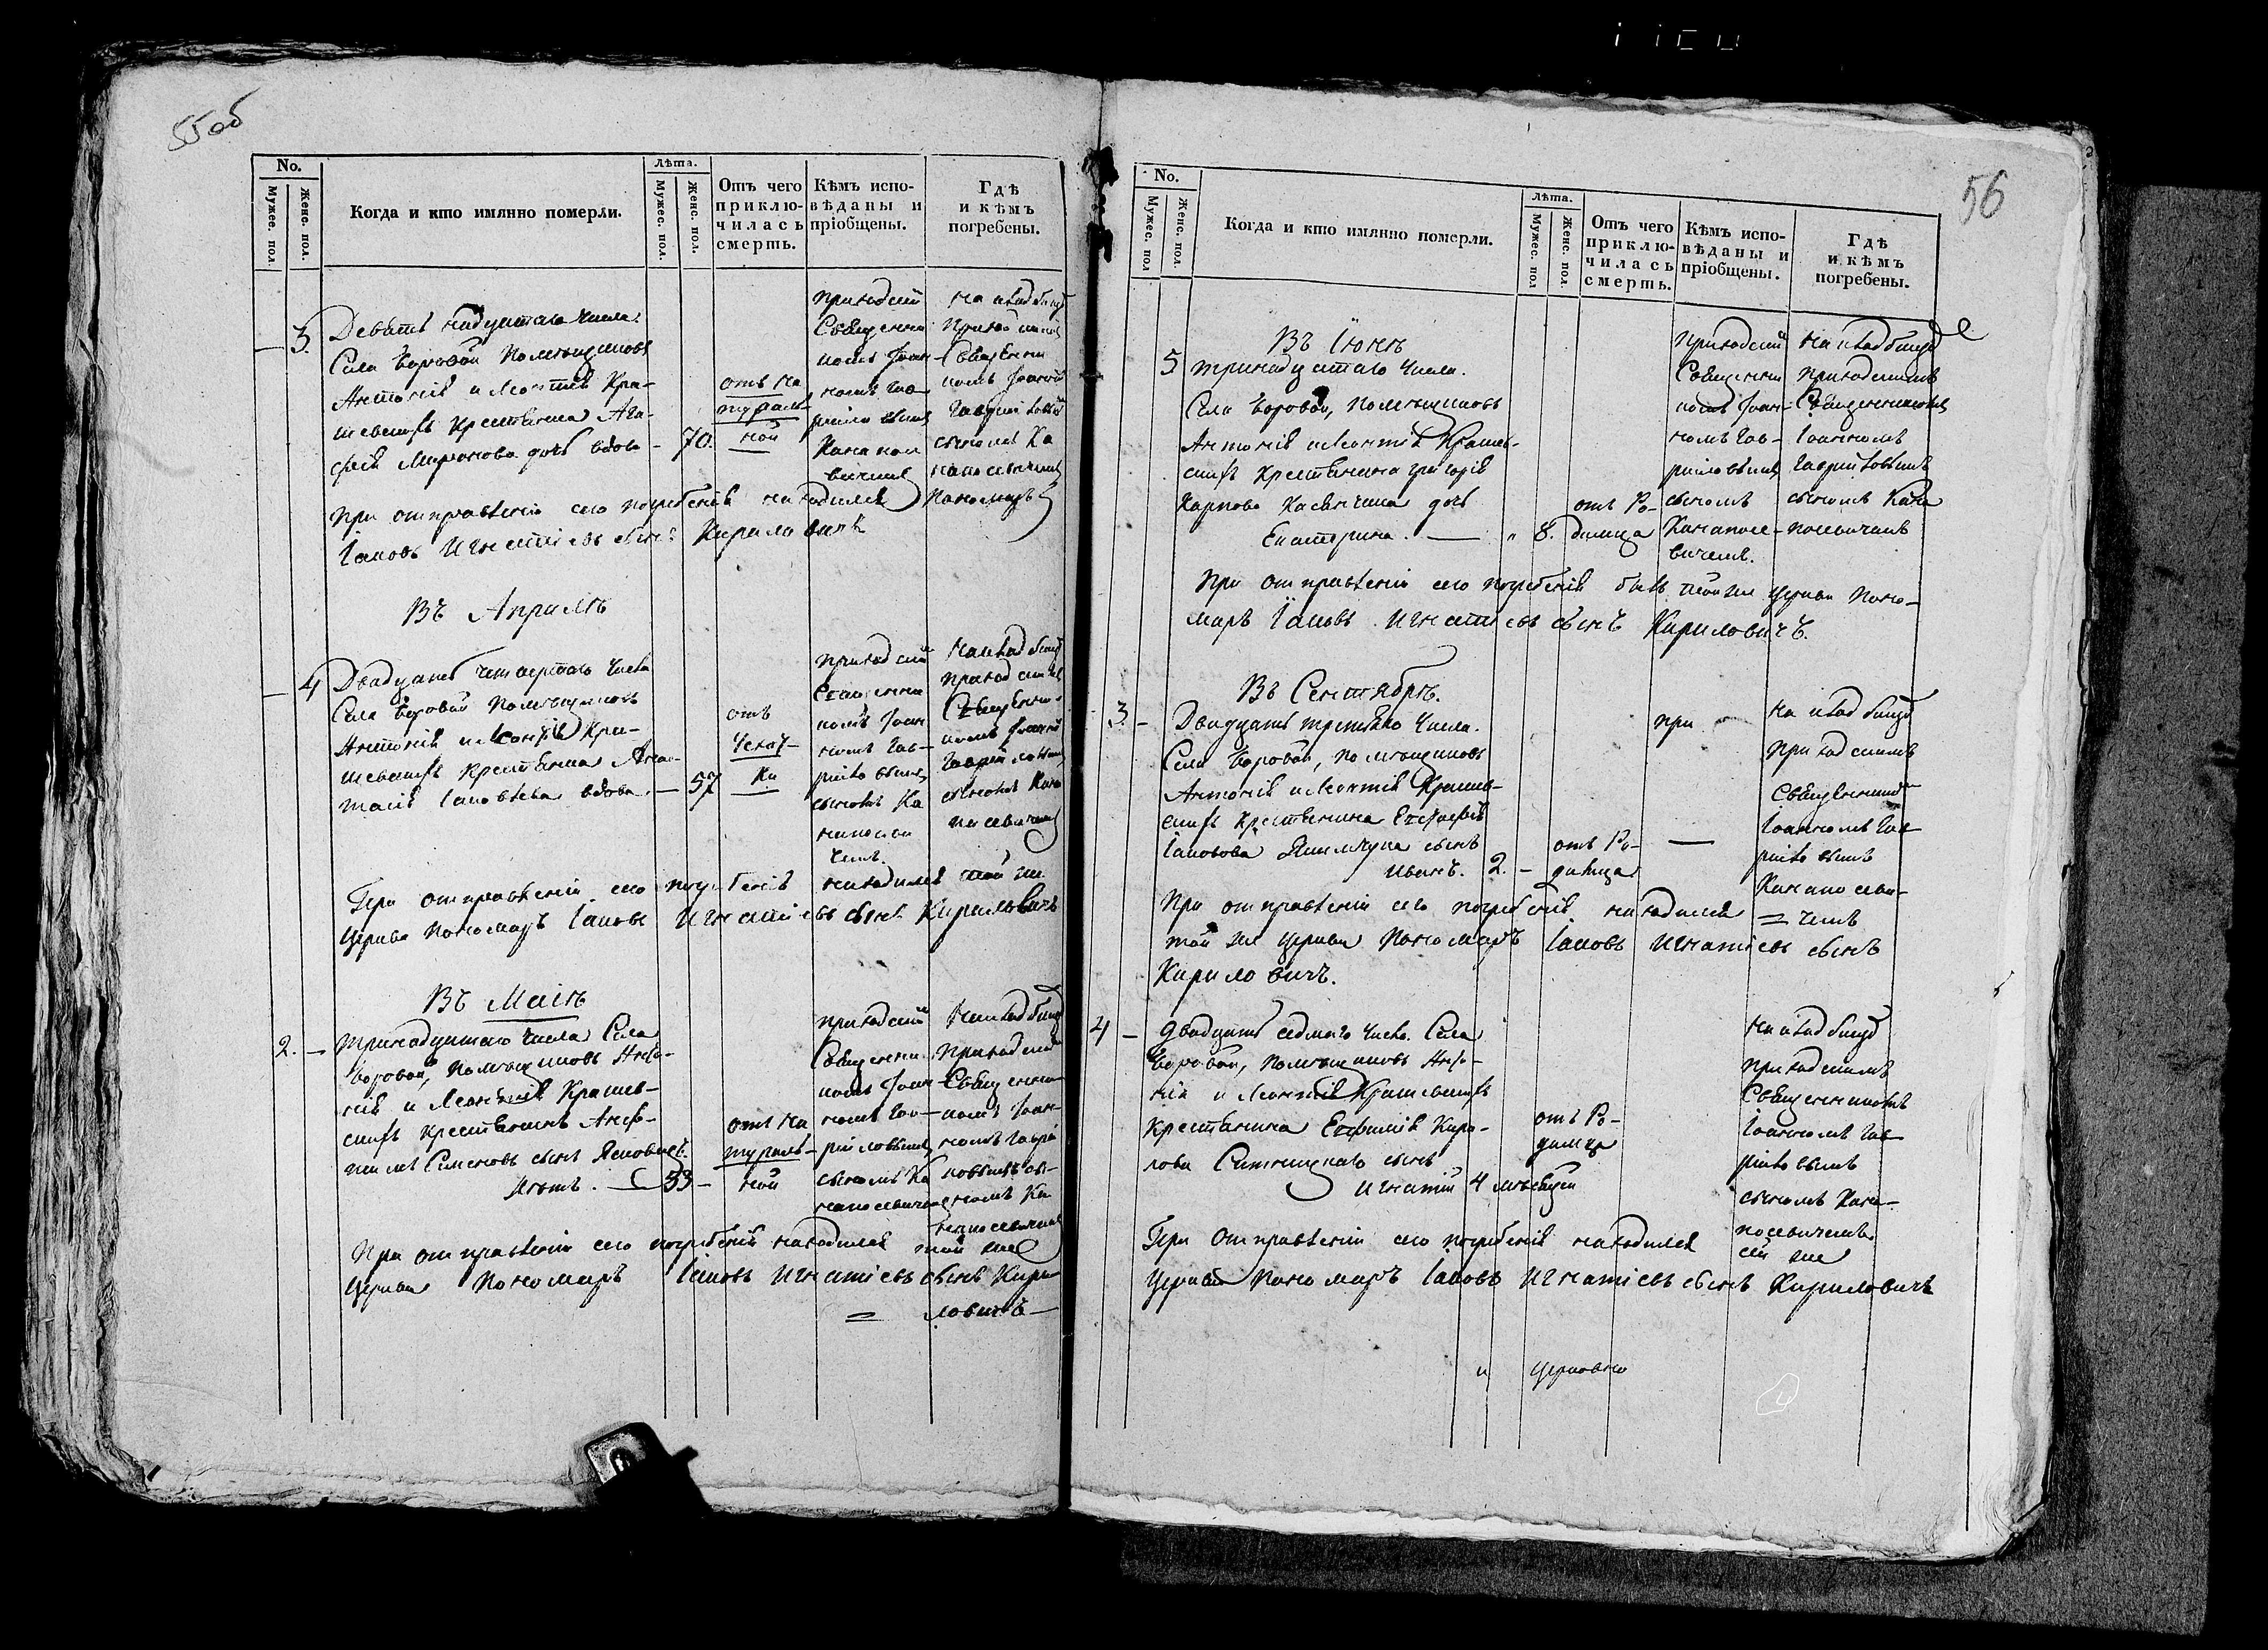 55об
No.
Мужес. пол.
Женс. пол.
Когда и кто имянно померли.
Лѣта.
Мужес. пол.
Женс. пол.
Отъ чего
приклю-
чилась
смерть.
Кѣмъ испо-
вѣданы и
пріобщены.
Гдѣ
и кѣмъ
погребены.
— 3.
Девять надцатаго числа.
Села Боровой Помѣщиковъ
Антонія и Леонтія Кра-
шевскихъ крестьянка Ага-
фія Миронова дочь вдова — 70.
отъ на
тураль-
ной
приходскимъ
Священни
комъ Іоан-
номъ Гав-
рііловымъ
Канапосе
вичемъ
на кладбищѣ
Приходскимъ
Священни
комъ Іоанномъ
сыномъ Ка
напосевичемъ
При отправленіи сего погребенія находился Пономарь
Іаковъ Игнатіевъ сынъ Кириловичъ
Въ Априлѣ
— 4
Двадцать четвертаго числа
Села Боровой Помѣщиковъ
Антонія и Леонтія Кра-
шевскихъ крестьянка
Іаковлева вдова. — 57
отъ
Чехот-
ки
приходскимъ
Священни
комъ Іоан
номъ Гав-
ріиловымъ
сыномъ Ка
напосеви
чемъ.
на кладбищѣ
приходскимъ
Священни-
комъ Іоанномъ
сыномъ Кана
посевичемъ
При отправленіи сего погребенія находился той же
Церкви Пономарь Іаковъ Игнатіевъ сынъ Кириловичъ
Въ Маіѣ
2. —
Тринадцатаго числа Села
Боровой, Помѣщиковъ Анто-
нія и Леонтія Крашев-
скихъ крестьянинъ
Симеоновъ сынъ
53 —
отъ на
тураль-
ной
приходскимъ
Священни-
комъ Іоан
номъ Гав-
ріиловымъ
сыномъ Ка
напосевичемъ
на кладбищѣ
приходскимъ
Священни
комъ Іоан-
номъ Гаврі
ловымъ сы-
номъ Ка
напосевичемъ
При отправленіи сего погребенія находился той же
Церкви Пономарь Іаковъ Игнатіевъ сынъ Кири
= ловичъ —
56
No.
Мужес. пол
Женс. пол.
Когда и кто имянно померли.
Лѣта.
Мужес. пол
Женс. пол.
Отъ чего
приклю-
чилась
смерть.
Кѣмъ испо-
вѣданы и
пріобщены.
Гдѣ
и кѣмъ
погребены.
Въ Іюнѣ
5
тринадцатаго числа.
Села Боровой, Помѣщиковъ
Антонія и Леонтія Крашев-
скихъ крестьянина Григорія
Карпова дочь
Екатерина. — " 8.
отъ Ро-
димца
приходскимъ
Священни
комъ Іоан-
номъ Гав-
ріиловымъ
сыномъ
Канапосе-
вичемъ.
на кладбищѣ
приходскимъ
Священникомъ
Іоанномъ
Гавриіловымъ
сыномъ Кана
посевичемъ
При отправленіи сего погребенія бывъ той же Церкви Поно-
марь Іаковъ Игнатіевъ сынъ Кириловичъ.
Въ Сентябрѣ.
3. —
Двадцать третьяго числа.
Села Боровой, Помѣщиковъ
Антонія и Леонтія Крашев-
скихъ крестьянина
Іаковова сынъ
Иванъ. 2. —
отъ Ро-
димца
при
—
на кладбищѣ
приходскимъ
Священникомъ
Іоанномъ Гав
ріиловымъ
Канапосеви-
= чемъ
При отправленіи сего погребенія находился
той же Церкви Пономарь Іаковъ Игнатіевъ сынъ
Кириловичъ.
4 —
Двадцать седмаго числа. Села
Боровой, Помѣщиковъ Анто-
нія и Леонтія Крашевскихъ
крестьянина Евфимія Кири-
лова сынъ
Игнатій 4 мѣсяцей
отъ Ро-
димца
на кладбищѣ
приходскимъ
Священникомъ
Іоанномъ Гав
ріиловымъ
сыномъ Кана-
посевичемъ.
При отправленіи сего погребенія находился сей же
Церкви Пономарь Іаковъ Игнатіевъ сынъ Кириловичъ
и Церковно